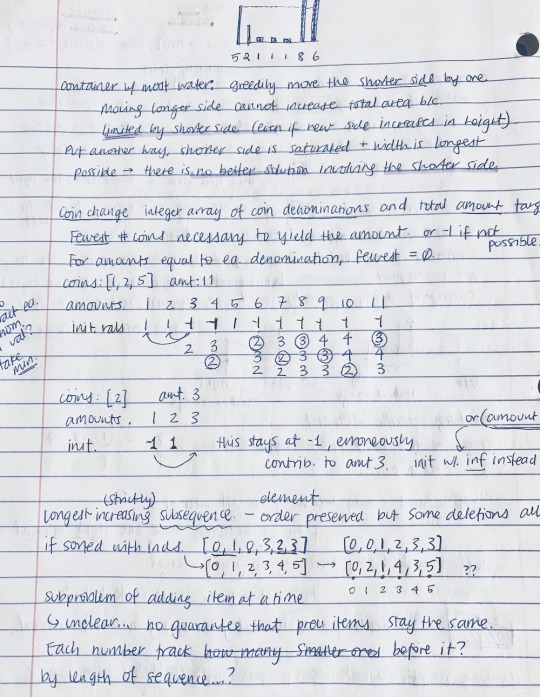 5 2 1 1 1 8 6
container w/ most water: greedily move the shorter side by one.
Moving longer side cannot increase total area b/c
limited by shorter side (even if new side increases in height)
Put another way, shorter side is saturated + width is longest
possible → there is no better solution involving the shorter side.
Coin change integer array of coin denominations and total amount targ
Fewest # coins necessary to yield the amount. or -1 if not
possible.
For amounts equal to ea. denomination, fewest = 0.
coins: [1, 2, 5] amt: 11
amounts 1 2 3 4 5 6 7 8 9 10 11
init vals 1 1 -1 -1 1 -1 -1 -1 -1 -1 -1
2 3 2 3 3 4 4 3
2 3 2 3 3 4 4
2 2 3 3 2 3
ea.
val?
take
min.
coins: [2] amt. 3
amounts. 1 2 3
or (amount
init. -1 1 this stays at -1, erroneously
contrib. to amt 3. init w/ inf instead
(strictly) element
longest increasing subsequence - order preserved but some deletions all
if sorted with inds. [0, 1, 0, 3, 2, 3] [0, 0, 1, 2, 3, 3]
→ [0, 1, 2, 3, 4, 5] → [0, 2, 1, 4, 3, 5] ??
0 1 2 3 4 5
subproblem of adding item at a time
↳ unclear... no guarantee that prev items stay the same.
Each number track how many smaller ones before it?
by length of sequence...?